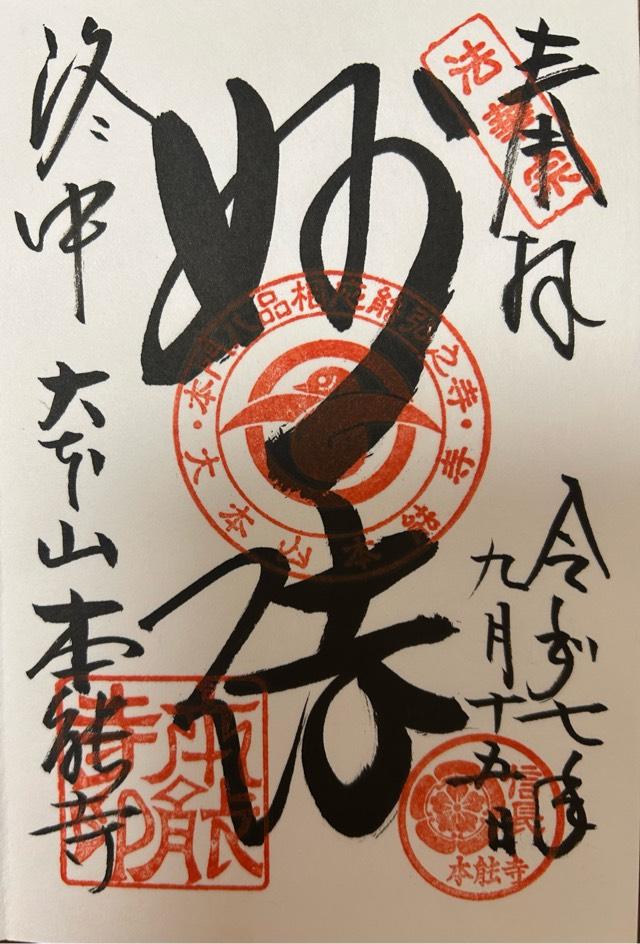 奉拝
令和七年
九月十五日
妙法
洛中
大本山本能寺
法華宗
信長
本能寺
本能寺印